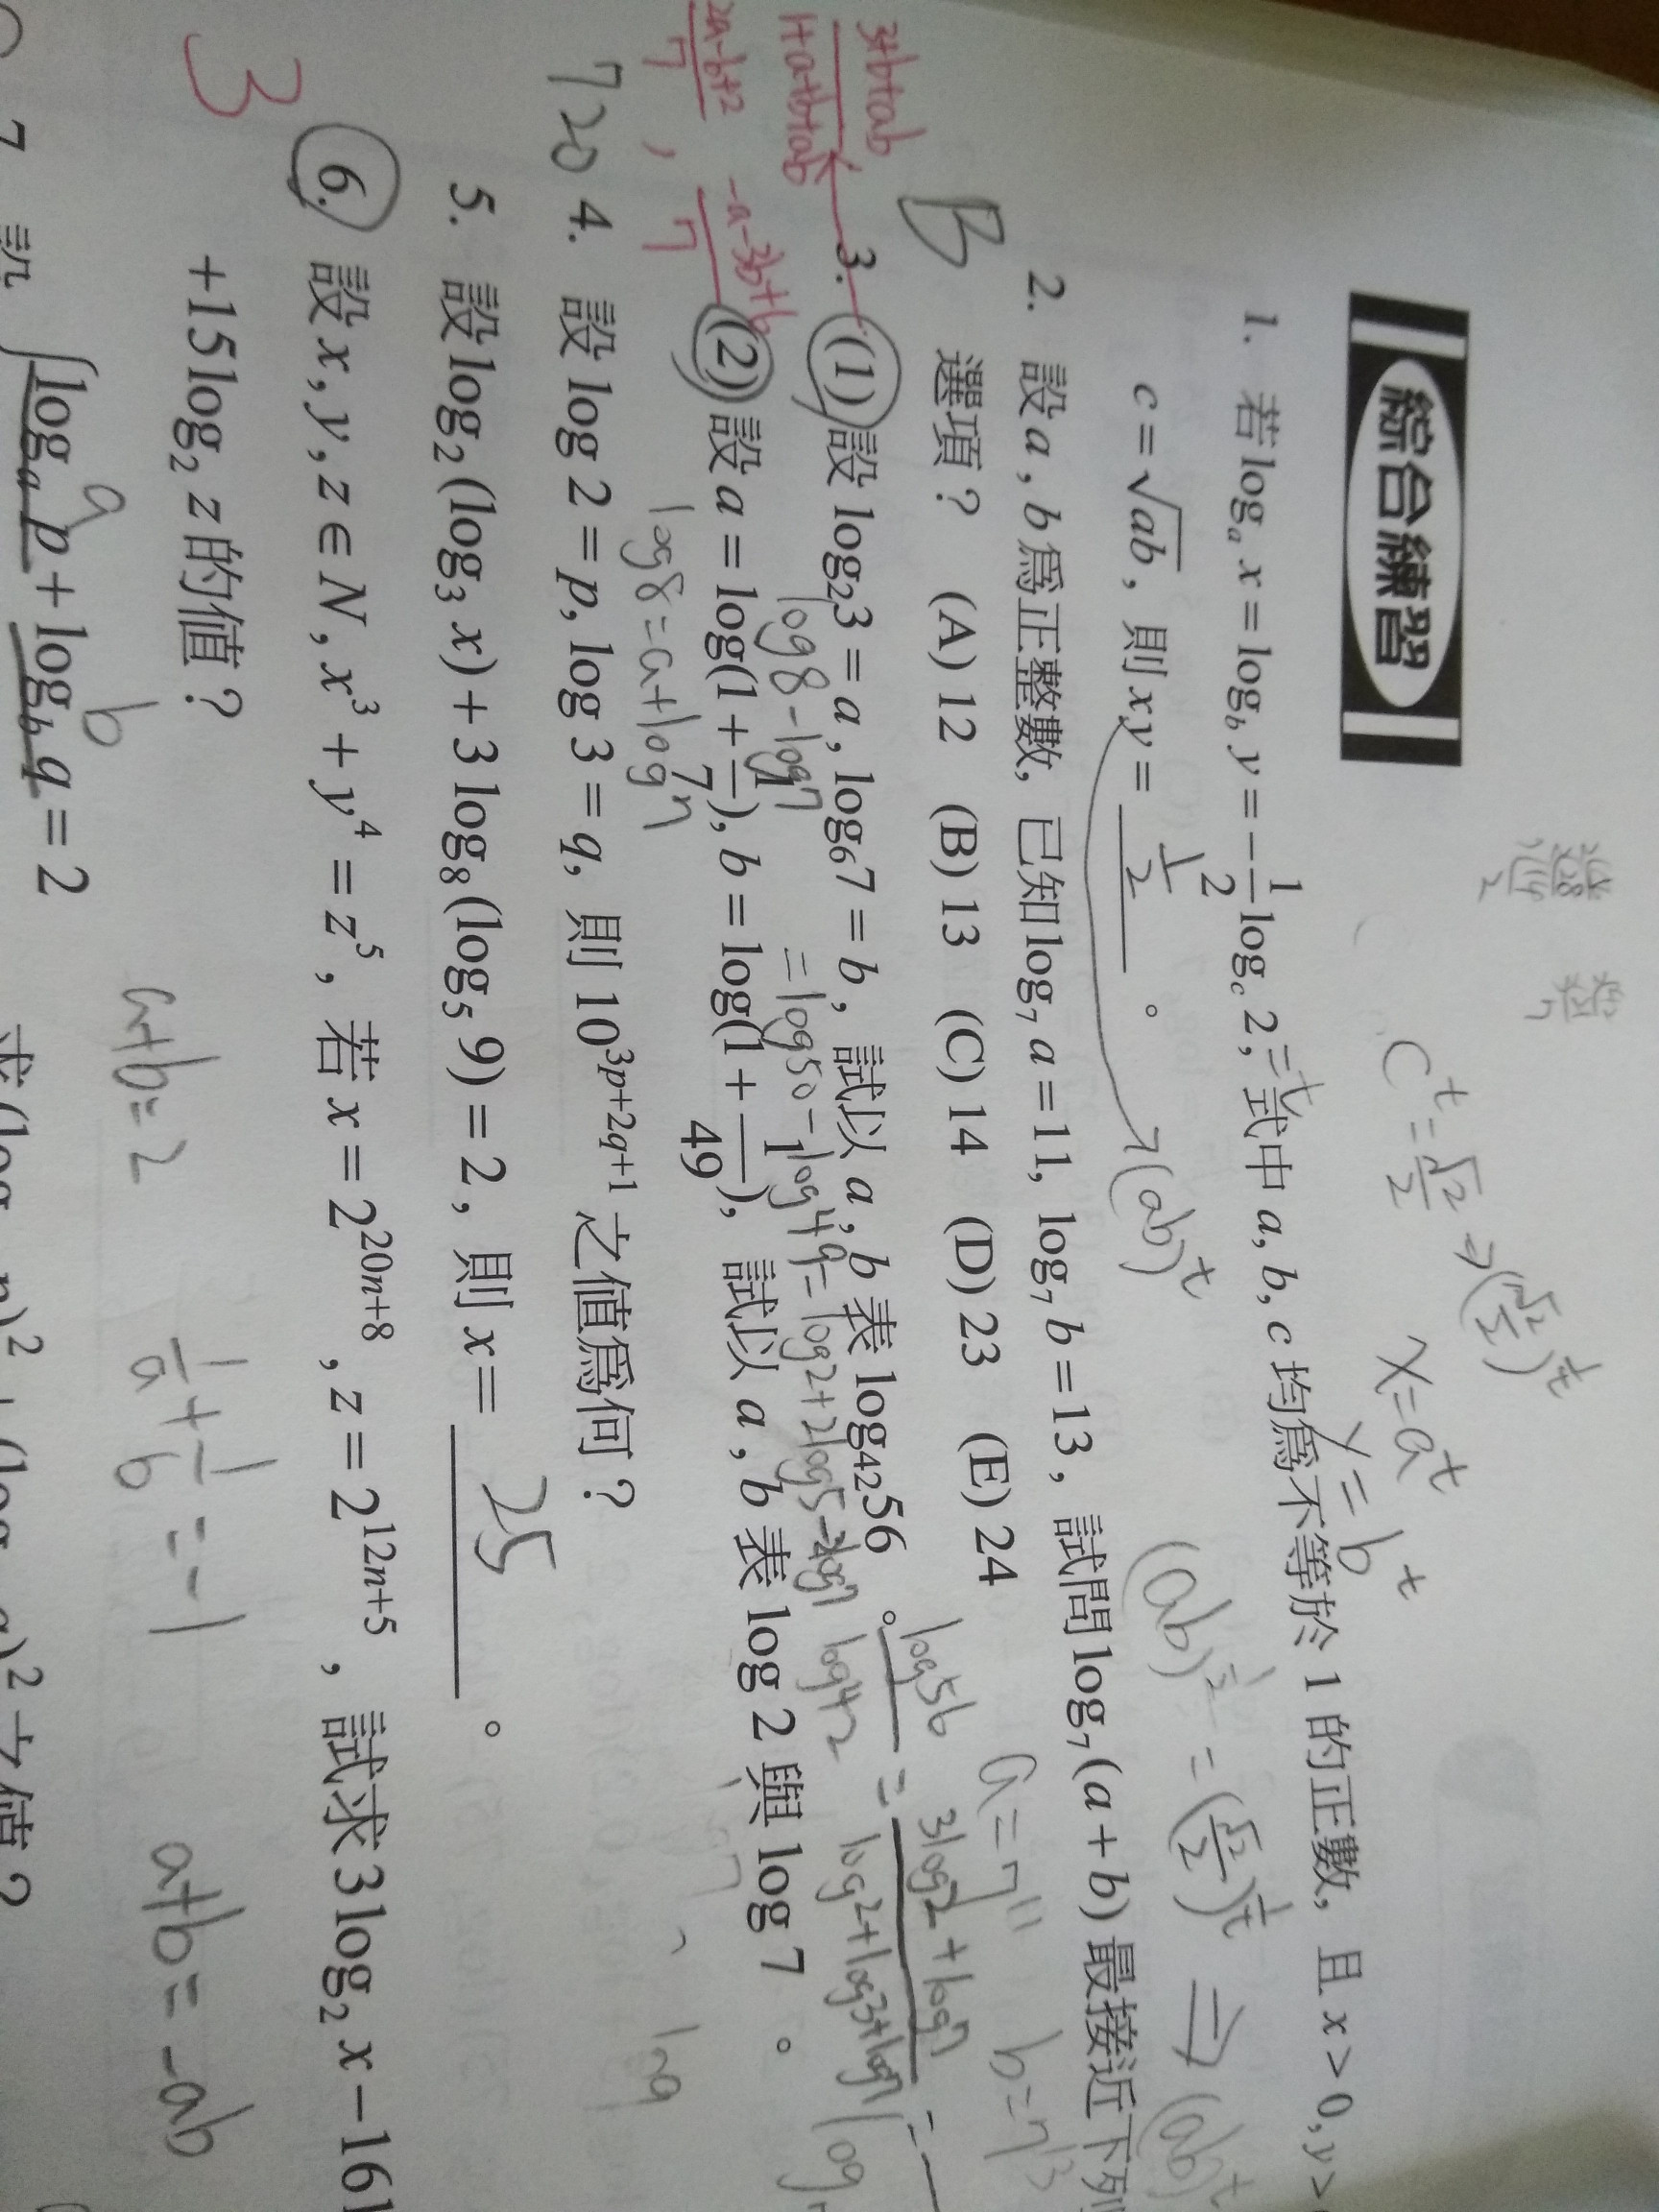 綜合練習
1. 若 logₐ x = log_b y = −1/2 log_c 2, 三式中 a, b, c 均為不等於 1 的正數, 且 x > 0, y >
c = √ab, 則 xy = 1/2 。
2. 設 a, b 為正整數, 已知 log₇ a = 11, log₇ b = 13, 試問 log₇ (a + b) 最接近下列
選項? (A) 12 (B) 13 (C) 14 (D) 23 (E) 24
B
3. (1) 設 log₂3 = a, log₆7 = b, 試以 a, b 表 log₄₂56 。
(2) 設 a = log(1 + 1/7), b = log(1 + 1/49), 試以 a, b 表 log 2 與 log 7 。
4. 設 log 2 = p, log 3 = q, 則 10^(3p+2q+1) 之值為何?
720
5. 設 log₂ (log₃ x) + 3 log₈ (log₅ 9) = 2, 則 x = 25 。
6. 設 x, y, z ∈ N, x³ + y⁴ = z⁵, 若 x = 2^(20n+8), z = 2^(12n+5), 試求 3 log₂ x − 16
+ 15 log₂ z 的值?
3
7. 設
logₐ p + log_b q = 2
a b
c^t = √2/2 ⇒ (√2/2)^(1/t)
x = a^t
y = b^t
(ab)^t
(ab)^(1/2) = (√2/2)^(1/t) ⇒ (ab)^t
a = 7^11 b = 7^13
log56/log42 = (3log2 + log7)/(log2 + log3 + log7) =
(3+b+ab)/(1+a+b+ab)
(2a−b+2)/7 ,
log8 − log7
= log50 − log49 = log2 + 2log5 − 2log7
log8 = a + log7
a+b = 2
1/a + 1/b = −1
a+b = −ab